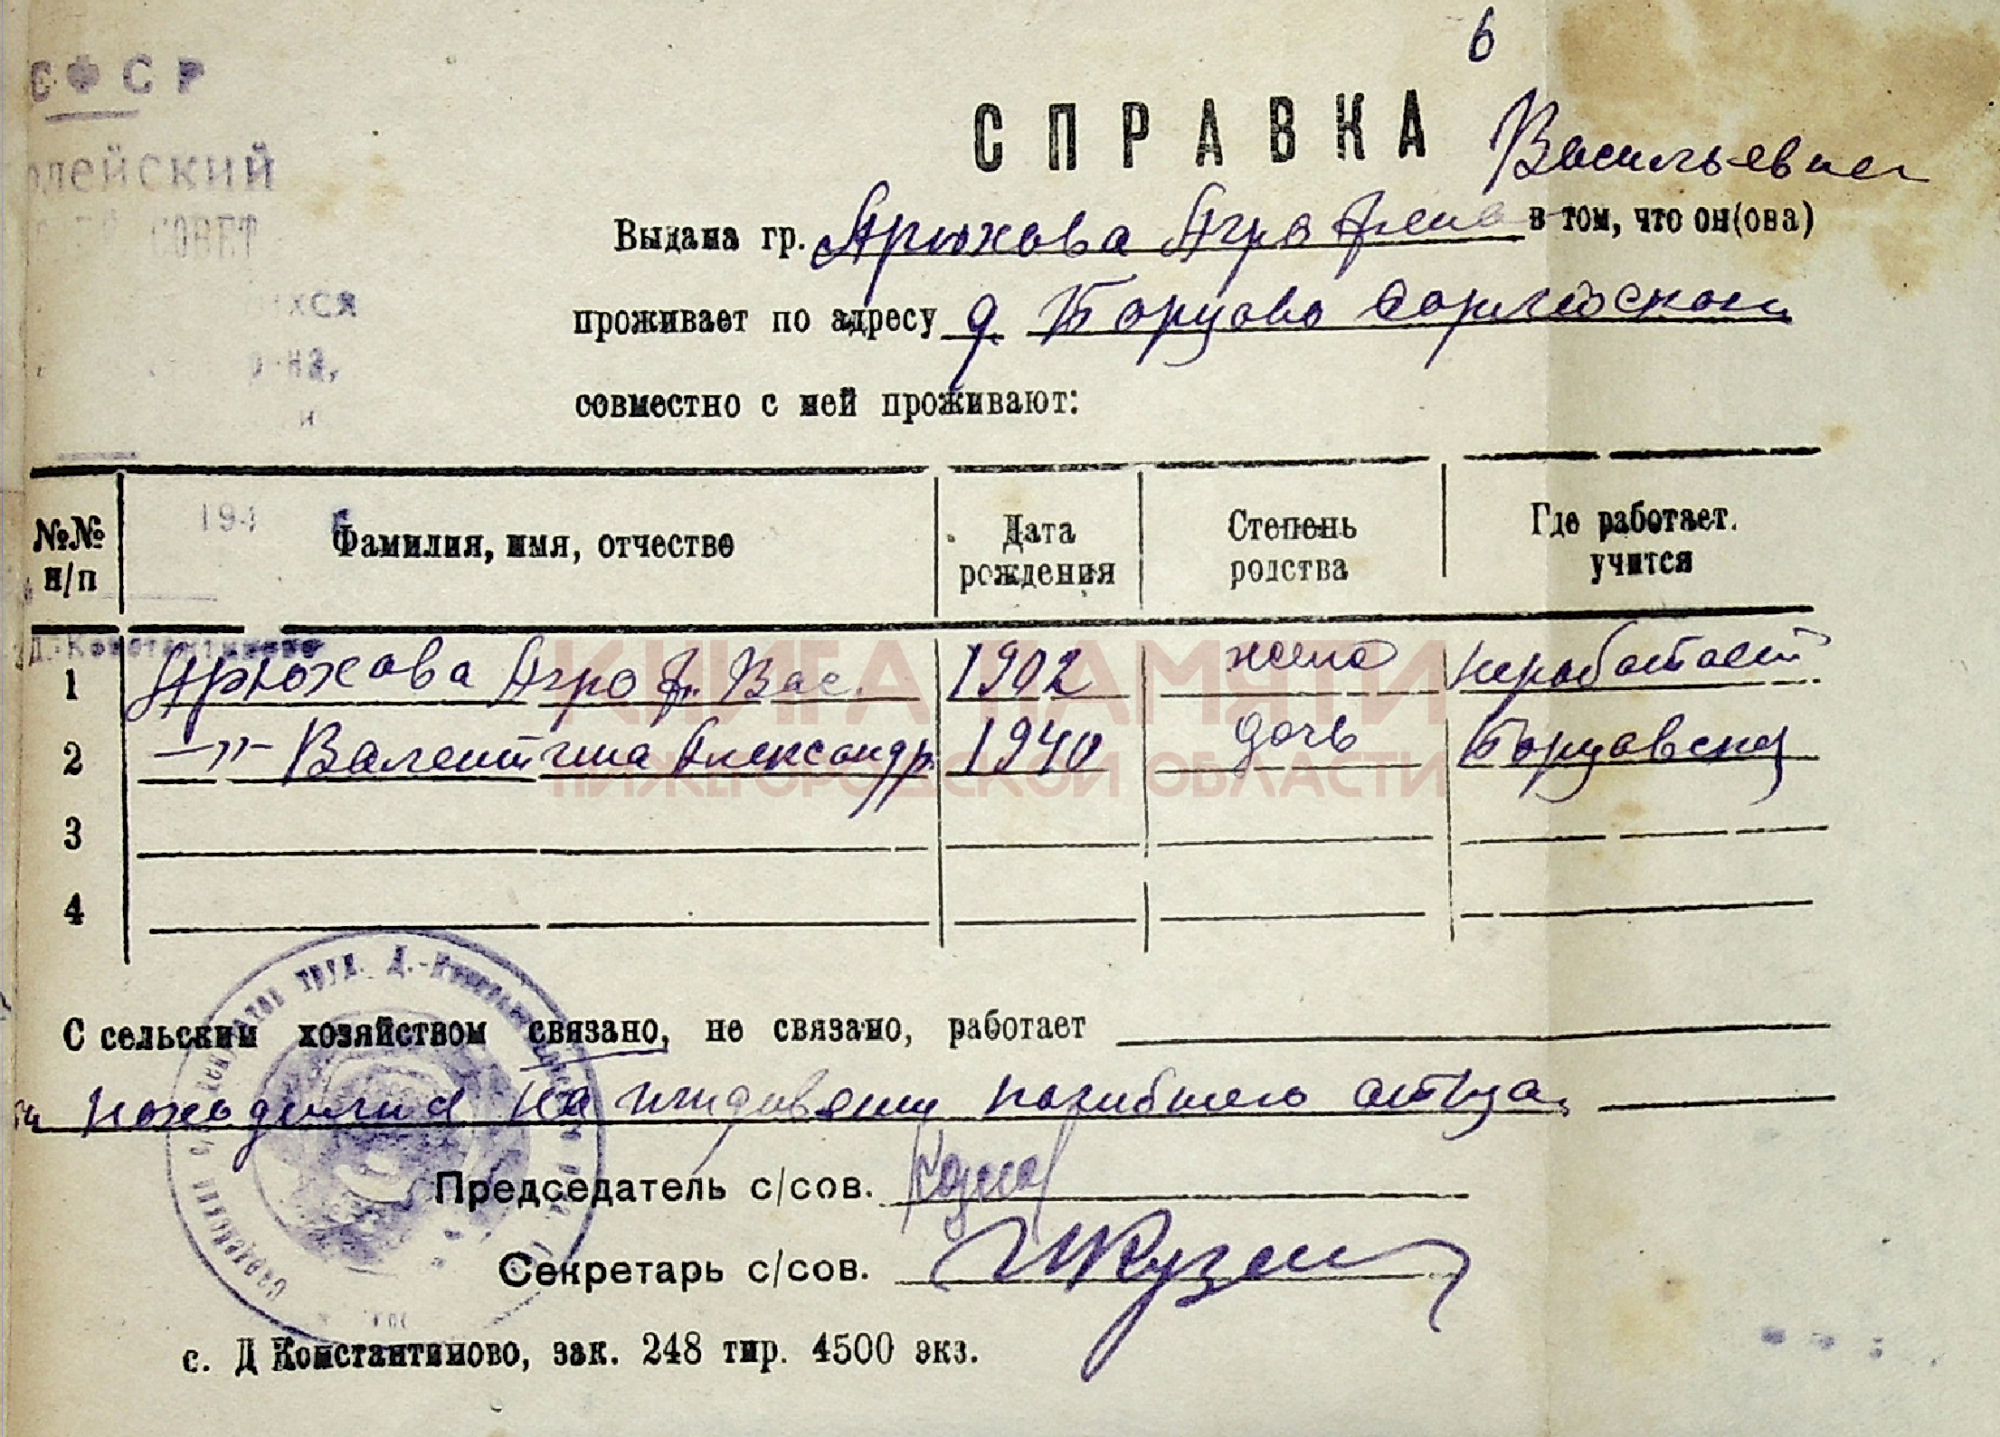 6
СФСР
СПРАВКА
Васильевна
олейский
СОВЕТ
Выдана гр. Арюхова Аграфена в том, что он(ова)
ихся
проживает по адресу д. Борцово Сарлейском
р-на,
и
совместно с ней проживают:
194 г.
№№ н/п Фамилия, имя, отчество Дата рождения Степень родства Где работает. учится
Д.-Константиново
1 Арюхова Агроф. Вас. 1902 жена неработает
2 —"— Валентина Александр. 1940 дочь Борцовска
3
4
КНИГА ПАМЯТИ
НИЖЕГОРОДСКОЙ ОБЛАСТИ
С сельским хозяйством связано, не связано, работает
находился на иждивении погибшего отца,
Председатель с/сов.
Секретарь с/сов. Кузн
с. Д Константиново, зак. 248 тир. 4500 экз.